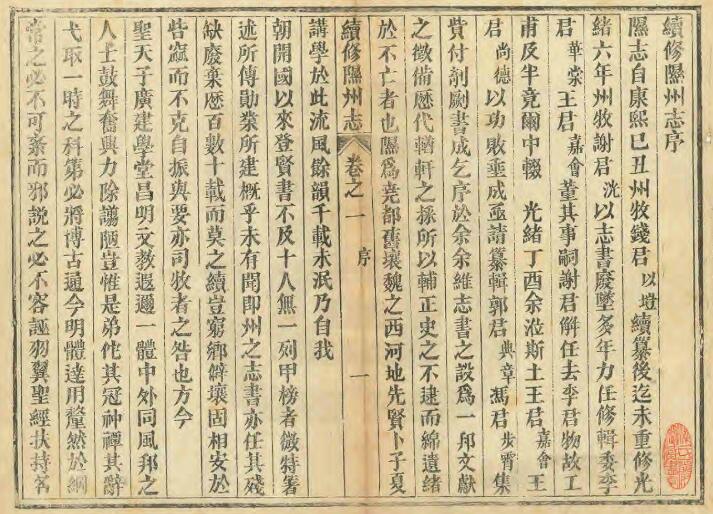 續修隰州志序
隰志自康熙己丑州牧錢君以塏續纂後迄未重修光
緒六年州牧謝君洸以志書廢墜多年力任修輯委李
君華棠王君嘉會董其事嗣謝君解任去李君物故工
甫及半竟爾中輟 光緒丁酉余涖斯土王君嘉會王
君尚德以功敗垂成亟請纂輯郭君典章馮君步霄集
貲付剞劂書成乞序於余余維志書之設爲一邦文獻
之徵備歷代輶軒之採所以輔正史之不逮而綿遺緒
於不亡者也隰爲堯都舊壤魏之西河地先賢卜子夏
續修隰州志 卷之一 序 一
講學於此流風餘韻千載未泯乃自我
朝開國以來登賢書不及十人無一列甲榜者微特著
述所傳勛業所建概乎未有聞即州之志書亦任其殘
缺廢棄歷百數十載而莫之續豈窮鄉僻壤固相安於
呰窳而不克自振與要亦司牧者之咎也方今
聖天子廣建學堂昌明文教遐邇一體中外同風邦之
人士鼓舞奮興力除譾陋豈惟是弟佗其冠神禫其辭
弋取一時之科第必將博古通今明體達用釐然於綱
常之必不可紊而邪說之必不容誣羽翼聖經扶持名